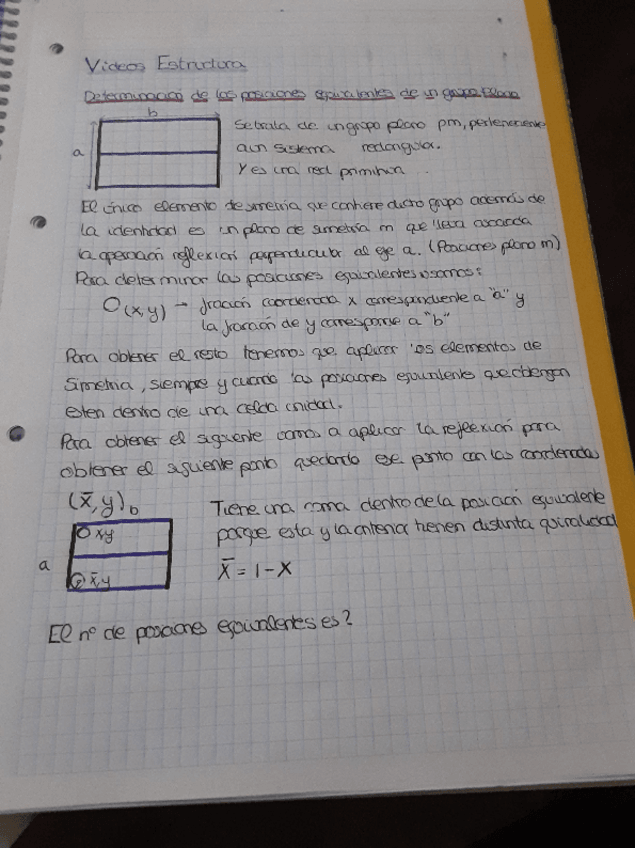 Videos Estructura
Determinació de las posiciones equivalentes de un grupo plano
b
a
Se trata de un grupo plano pm, perteneciente
a un sistema rectangular.
Y es una red primitiva.
El único elemento de simetría que contiene dicho grupo además de
la identidad es un plano de simetría m que lleva asociada
la operación reflexión perpendicular al eje a. (Posiciones plano m)
Para determinar las posiciones equivalentes usamos:
O(x,y) → fracción coordenada x correspondiente a "a" y
la fracción de y corresponde a "b"
Para obtener el resto tenemos que aplicar los elementos de
Simetría, siempre y cuando las posiciones equivalentes que obtengan
esten dentro de una celda unidad.
Para obtener el siguiente vamos a aplicar la reflexión para
obtener el siguiente punto quedando ese punto con las coordenadas
(x̄,y)
b
a
xy
x̄,y
Tiene una coma dentro de la posición equivalente
porque esta y la anterior tienen distinta quiralidad
x̄ = 1 - x
El nº de posiciones equivalentes es?